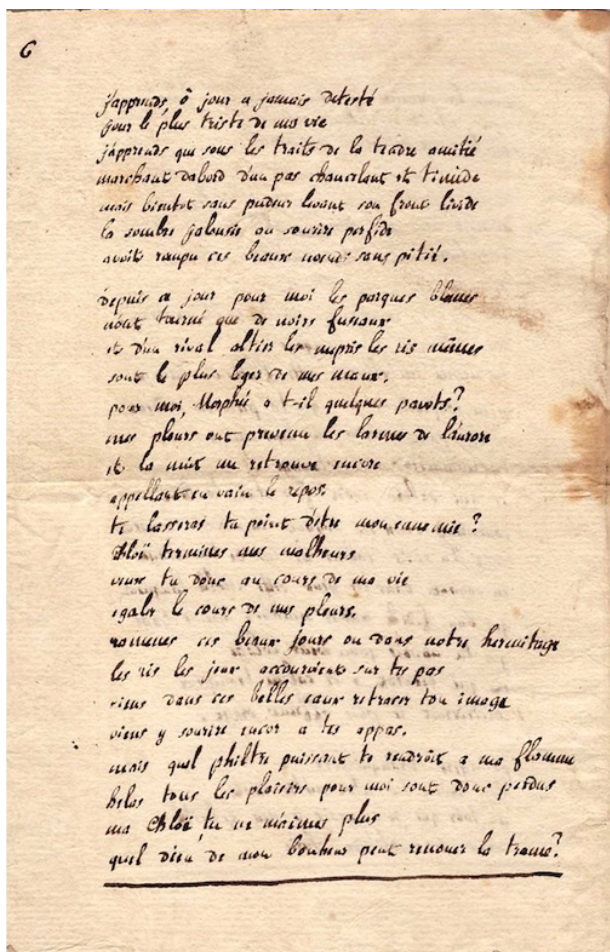 6
j'apprends, ô jour a jamais detesté
jour le plus triste de ma vie
j'apprends que sous les traits de la tendre amitié
marchant dabord d'un pas chancelant et timide
mais bientot sans pudeur levant son front livide
la sombre jalousie au sourire perfide
avoit rompu ces beaux noeuds sans pitié.
depuis ce jour pour moi les parques blemes
n'ont tourné que de noirs fuseaux
et d'un rival altier les mepris les ris mêmes
sont le plus leger de mes maux.
pour moi, Morphée a t-il quelques pavots?
mes pleurs ont prevenu les larmes de l'aurore
et la nuit me retrouve encore
appellant en vain le repos.
te lasseras tu point d'être mon ennemie?
Chloë termines mes malheurs
veux tu donc au cours de ma vie
egaler le cours de mes pleurs.
ramenes ces beaux jours ou dans notre hermitage
les ris les jeux accouroient sur tes pas
viens dans ces belles eaux retracer ton image
viens y sourire encor a tes appas.
mais quel philtre puissant te rendroit a ma flamme
helas tous les plaisirs pour moi sont donc perdus
ma Chloë tu ne m'aimes plus
quel dieu de mon bonheur peut renouer la trame?